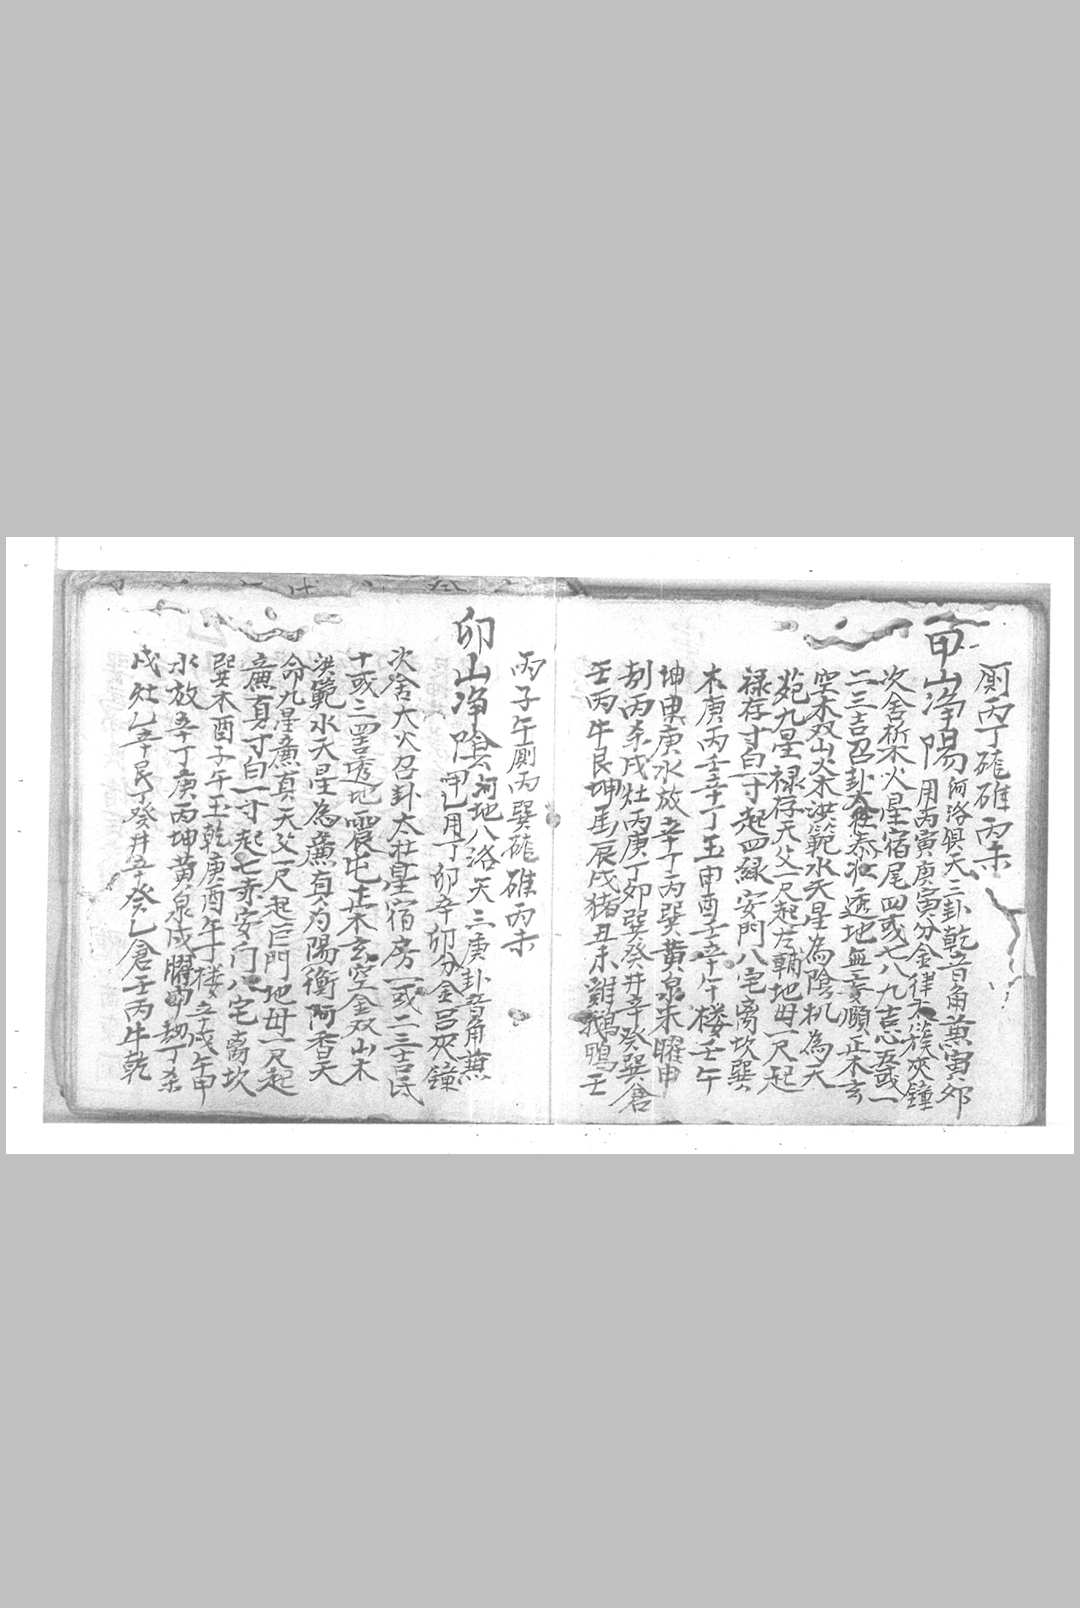 厕丙丁碓磑丙未
甲山淨陽河洛俱天三卦乾音角蕪寅邜
用丙寅庚寅分金律太簇夾鐘
次舍析木火星宿尾四或七八九吉忌五或一
二三吉召卦大壯泰壯透地無妄順正木玄
空木双山火木洪範水天星為陰机為天
苑九星禄存天父一尺起左輔地毋一尺起
禄存寸白一寸起四緑安門八宅离坎巽
木庚丙壬辛丁玉申酉壬辛午楼壬午
坤巽庚水放辛丁丙巽黄泉未曜申
刼丙杀戌灶丙庚丁卯巽癸井辛癸巽倉
壬丙牛艮坤馬辰戌猪丑未雞鵝鴨壬
丙子午厠丙巽碓磑丙未
卯山淨陰河地八洛天三庚卦音角蕪
甲乙用丁卯辛卯分金吕夾鐘
次舍大火召卦太壮星宿房一或二三吉氐
十或三四吉透地震屯正木玄空金双山木
洪範水天星為廉貞為陽衡阿香天
命九星廉真天父一尺起巨門地毋一尺起
廉真寸白一寸起七赤安门八宅离坎
巽木酉子午玉乾庚酉午丁楼辛戌午甲
水放辛丁庚丙坤黄泉戌曜申刼丁杀
戌灶乙辛艮丁癸井辛癸乙倉壬丙牛乾